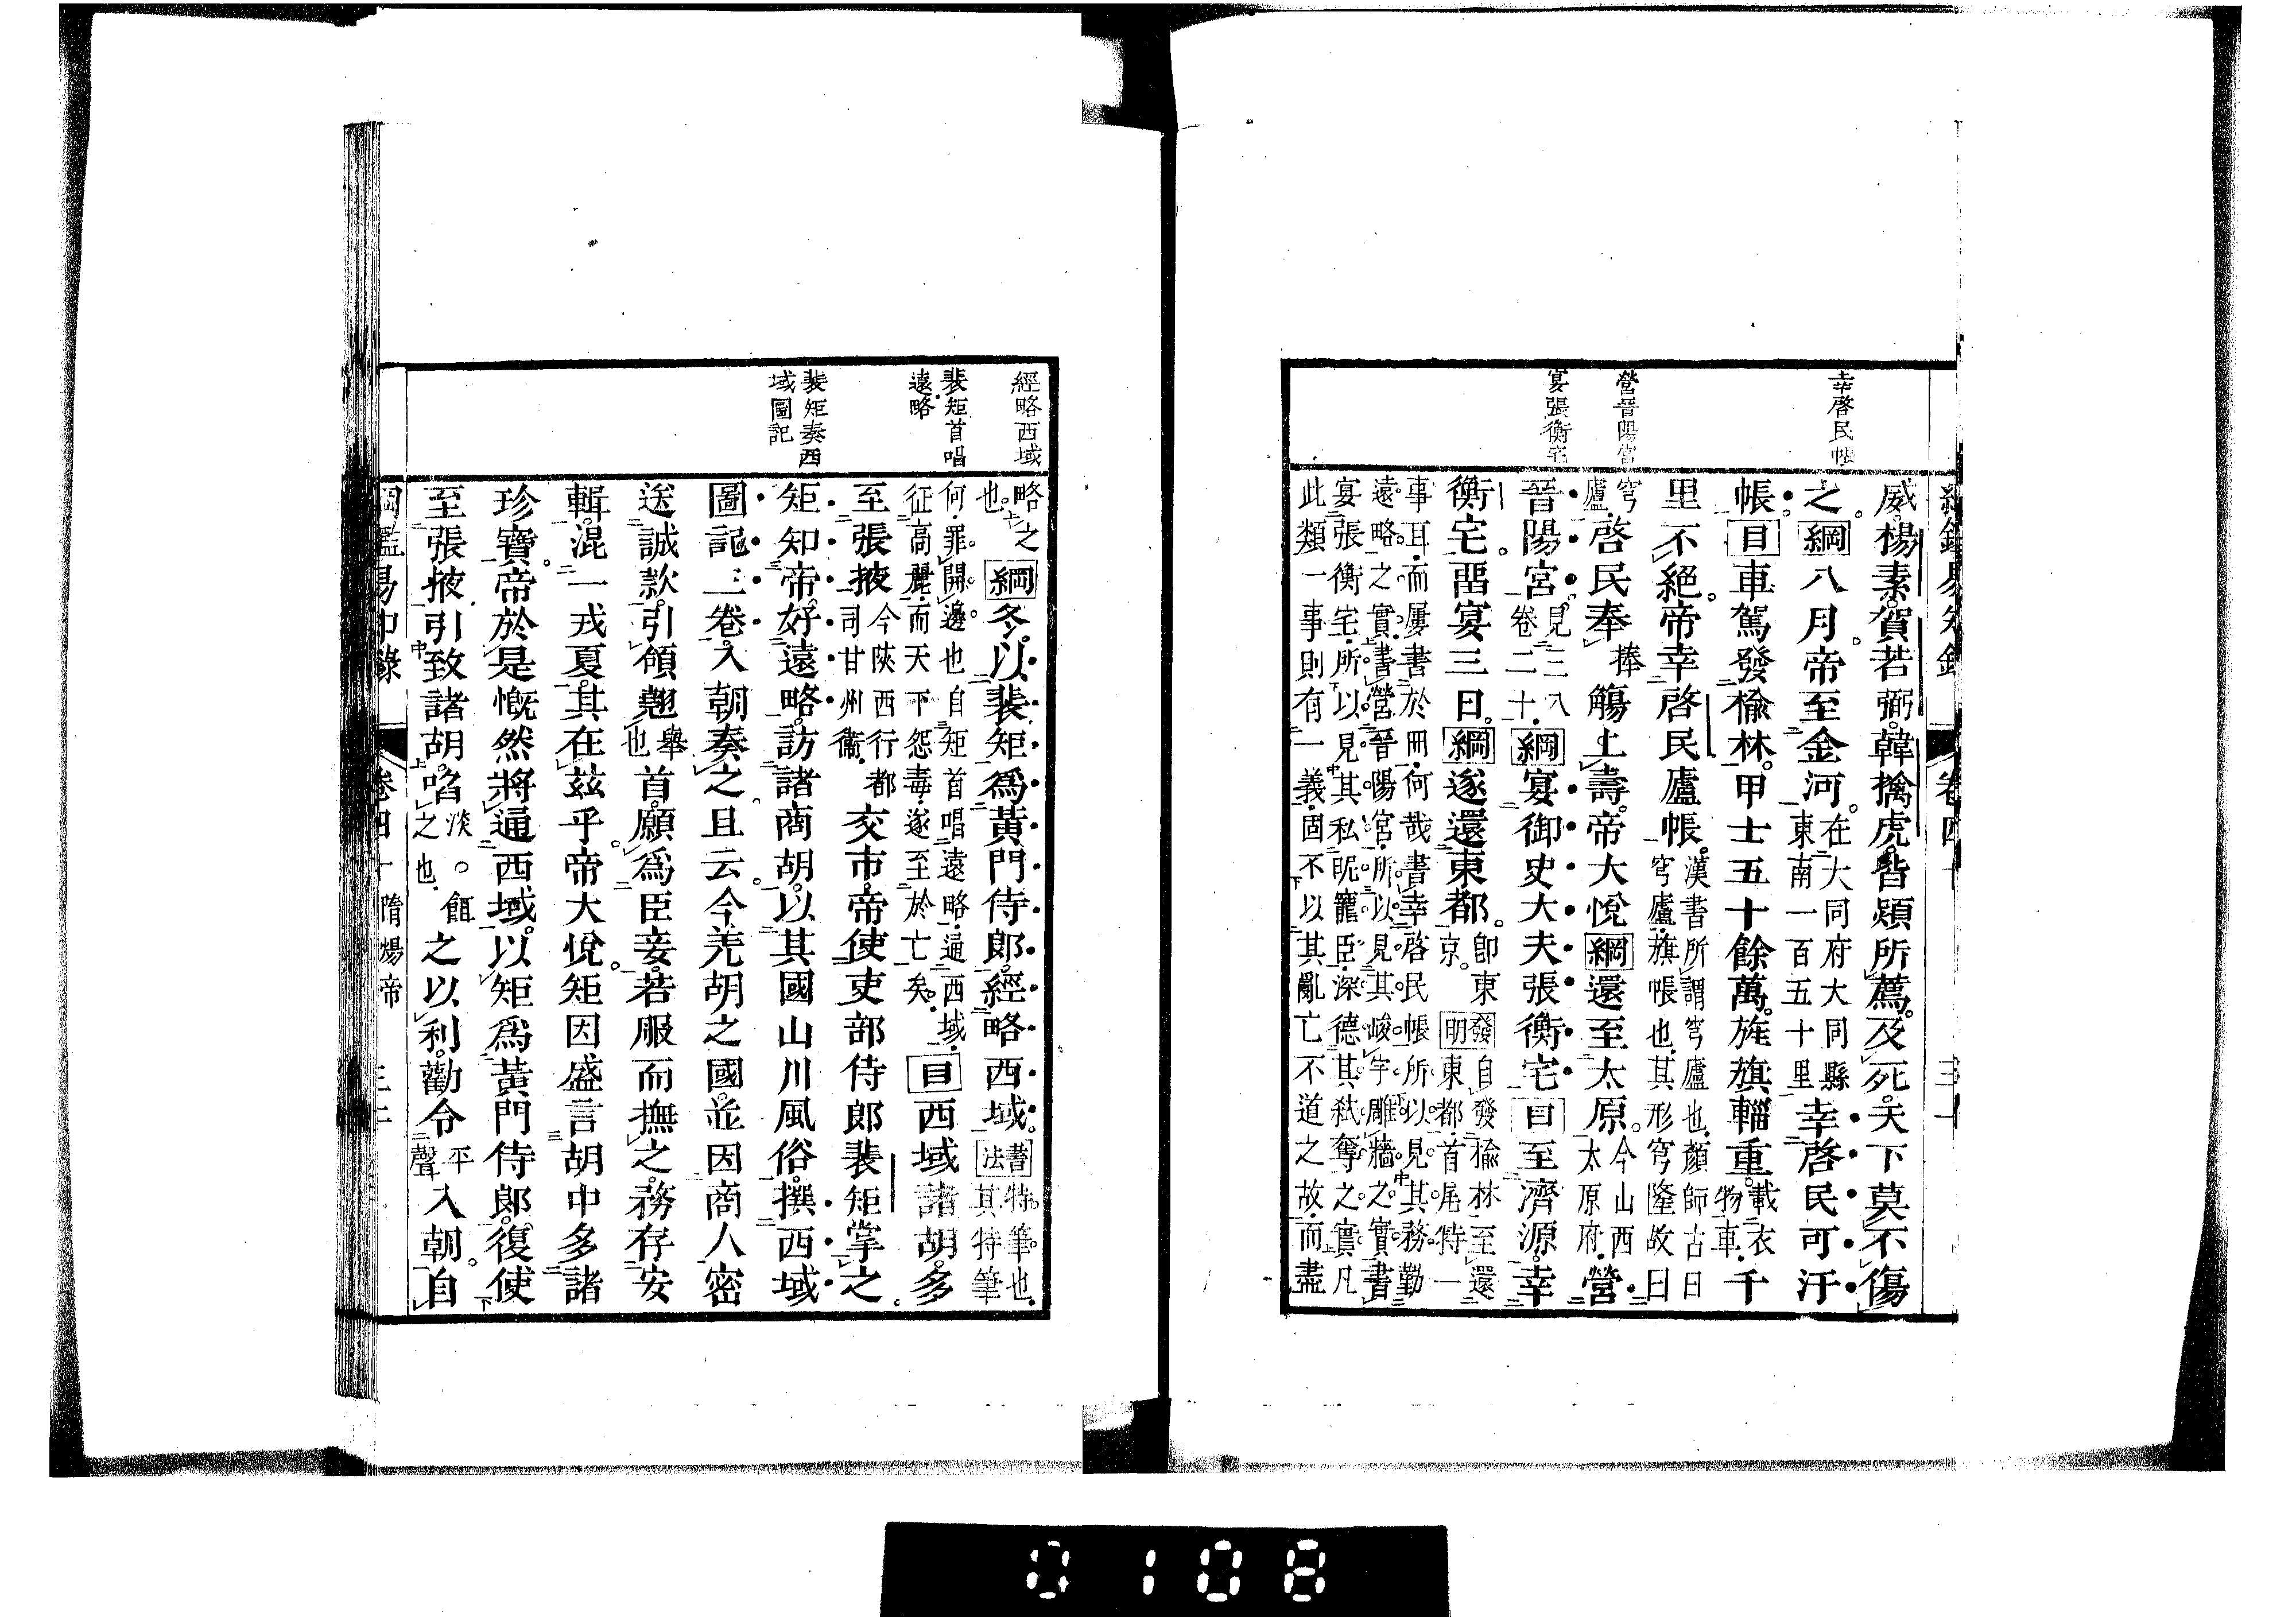 綱鑑易知錄 卷四十 三十一
幸啓民帳
營晉陽宮
宴張衡宅
威。楊素。賀若弼。韓擒虎。皆熲所薦。及死。天下莫不傷
之。綱八月。帝至金河。在大同府大同縣東南一百五十里幸啓民可汗
帳。目車駕發榆林。甲士五十餘萬。旌旗輜重。載衣物車。千
里不絕。帝幸啓民廬帳。漢書所謂穹廬也。顏師古曰穹廬。旗帳也。其形穹隆故曰
穹廬。啓民奉捧觴上壽。帝大悅綱還至太原。今山西太原府。營
晉陽宮。見三八卷二十。綱宴御史大夫張衡宅目至濟源。幸
衡宅。畱宴三日。綱遂還東都。卽東京。發明自發榆林至還東都。首尾特一
事耳。而屢書於冊。何哉。書幸啓民帳。所以見其務勤
遠略之實。書營晉陽宮。所以見其峻宇雕牆之實。書
宴張衡宅。所以見其私昵寵臣。深德其弒奪之實。凡
此類一事則有一義。固不以其亂亡不道之故。而盡
經略西域
裴矩首唱
遠略
裴矩奏西
域圖記
略之也。綱冬。以裴矩爲黃門侍郎。經略西域。書法特筆也。其特筆
何。罪開邊也。自矩首唱遠略。通西域。
征高麗。而天下怨毒。遂至於亡矣。目西域諸胡。多
至張掖今陝西行都司甘州衞。交市。帝使吏部侍郎裴矩掌之。
矩知帝好遠略。訪諸商胡。以其國山川風俗。撰西域
圖記三卷。入朝奏之。且云。今羌胡之國。並因商人密
送誠款。引領翹舉也首。願爲臣妾。若服而撫之。務存安
輯。混一戎夏。其在茲乎。帝大悅。矩因盛言胡中多諸
珍寶。帝於是慨然將通西域。以矩爲黃門侍郎。復使
至張掖。引致諸胡。啗淡。餌之也。之以利。勸令平聲入朝。自
綱鑑易知錄 卷四十 隋煬帝 三十一
0108